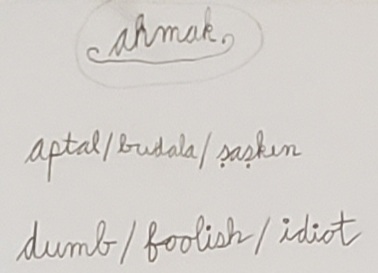 ahmak
aptal/budala/şaşkın
dumb/foolish/idiot